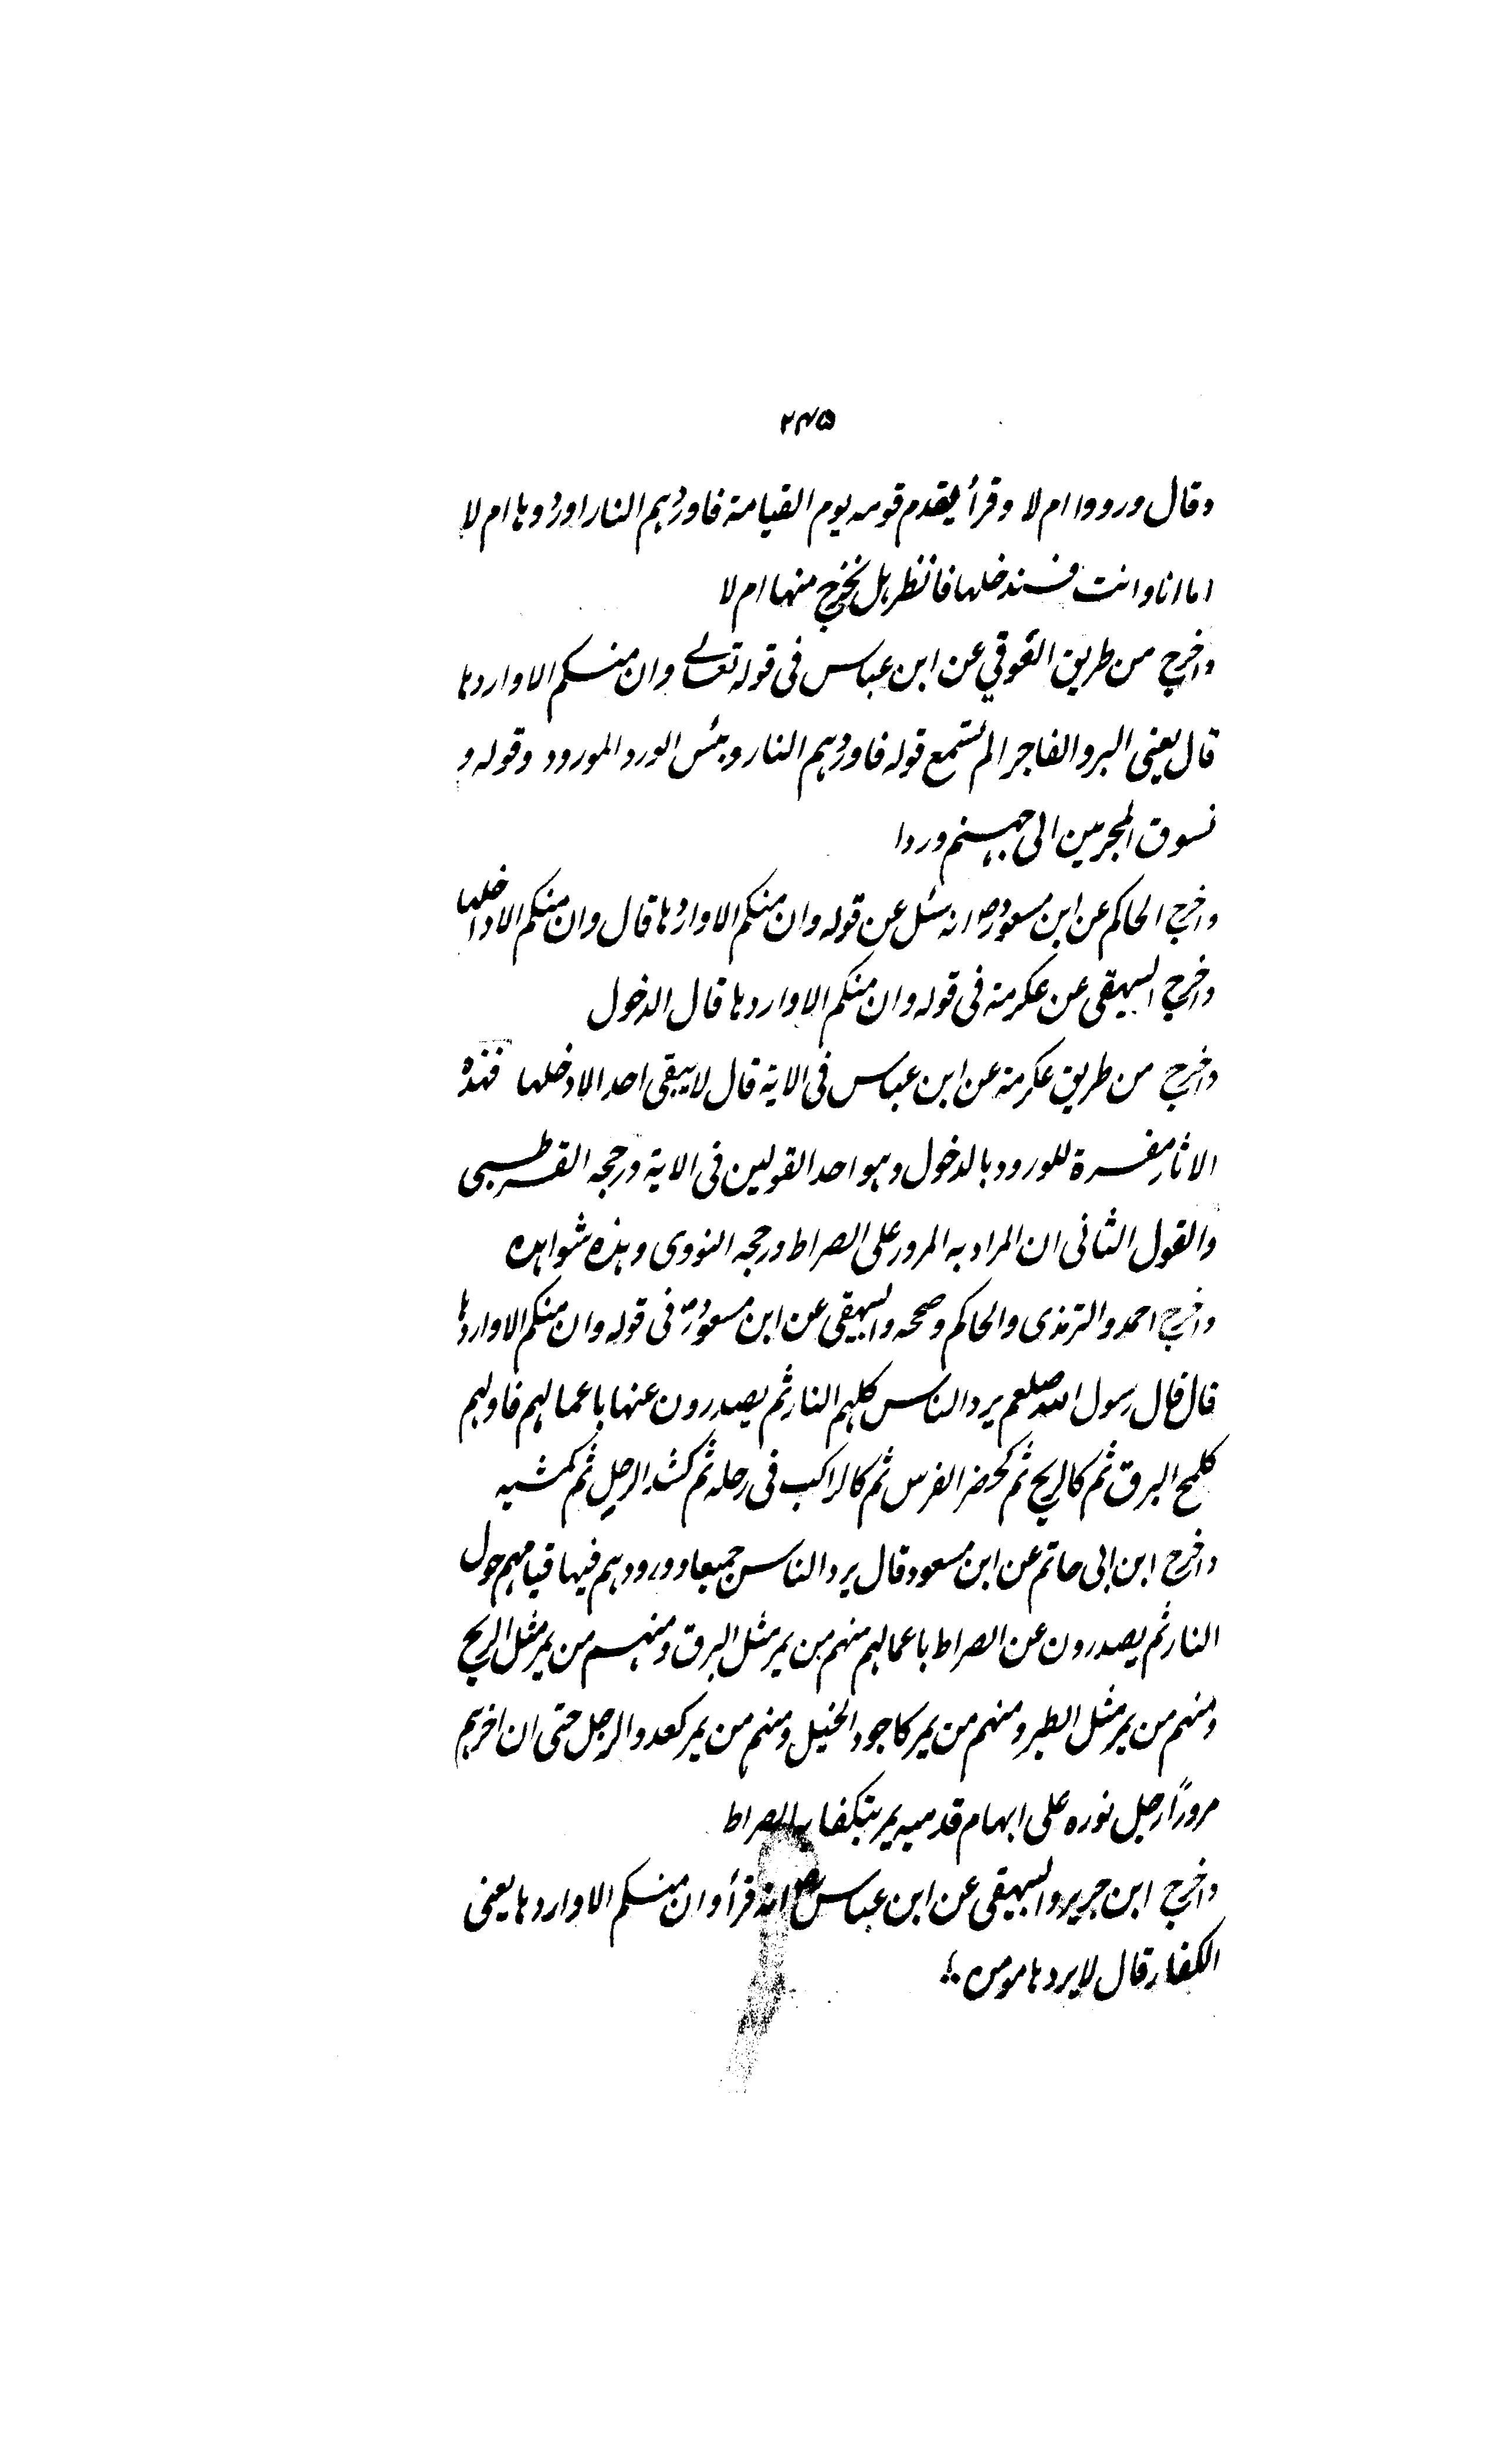 ۲۴۵
وقال ورووا ام لا وقرأ يقدم قومه يوم القيامة فاوردهم النار اوردوها ام لا
اما انا وانت فسندخلها فانظر هل نخرج منها ام لا
واخرج من طريق العوفي عن ابن عباس فى قوله تعالے وان منكم الا واردها
قال يعنى البر والفاجر الم تسمع قوله فاوردهم النار وبئس الورد المورود وقوله و
نسوق المجرمين الى جهنم وردا
واخرج الحاكم عن ابن مسعودؓ انه سئل عن قوله وان منكم الا واردها قال وان منكم الا داخلها
واخرج البيهقى عن عكرمة فى قوله وان منكم الا واردها قال الدخول
واخرج من طريق عكرمة عن ابن عباس فى الاية قال لا يبقى احد الا دخلها فهذه
الاثار مفسرة للورود بالدخول وهو احد القولين فى الاية ورجحه القرطبى
والقول الثانى ان المراد به المرور على الصراط ورجحه النووى وهذه شواهده
واخرج احمد والترمذى والحاكم وصححه والبيهقى عن ابن مسعودؓ فى قوله وان منكم الا واردها
قال قال رسول الله صلعم يرد الناس كلهم النار ثم يصدرون عنها باعمالهم فاولهم
كلمح البرق ثم كالريح ثم كحضر الفرس ثم كالراكب فى رحله ثم كشد الرجل ثم كمشيه
واخرج ابن ابى حاتم عن ابن مسعود قال يرد الناس جميعا وورودهم فيها قيامهم حول
النار ثم يصدرون عن الصراط باعمالهم منهم من يمر مثل البرق ومنهم من يمر مثل الريح
ومنهم من يمر مثل الطير ومنهم من يمر كاجود الخيل ومنهم من يمر كعدو الرجل حتى ان اخرهم
مرورًا رجل نوره على ابهام قدميه يمر يتكفا به الصراط
واخرج ابن جرير والبيهقى عن ابن عباسؓ انه قرأ وان منكم الا واردها يعنى
الكفار قال لا يردها مومن